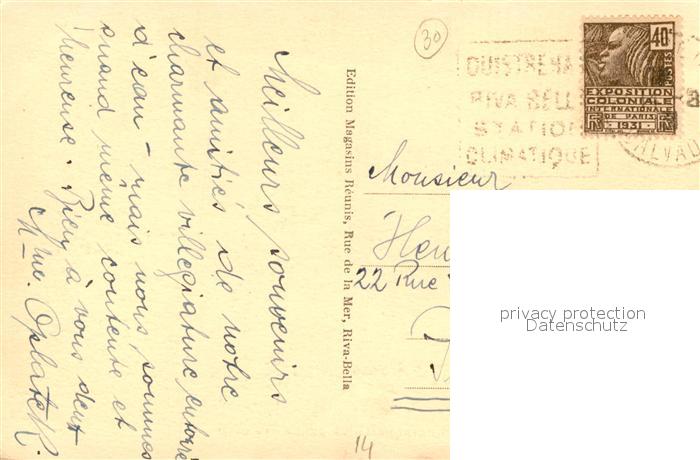 Meilleurs souvenirs
et amitiés de notre
charmante villégiature entourée
d'eau - mais nous sommes
quand même contents et
heureuse. Bien à vous deux
Mme.
Edition Magasins Réunis, Rue de la Mer, Riva-Bella
30
OUISTREHA
RIVA BELL
STATION
CLIMATIQUE
40c
POSTES
EXPOSITION
COLONIALE
INTERNATIONALE
DE PARIS
1931
CALVAD
Monsieur
Hen
22 Rue
14
privacy protection
Datenschutz